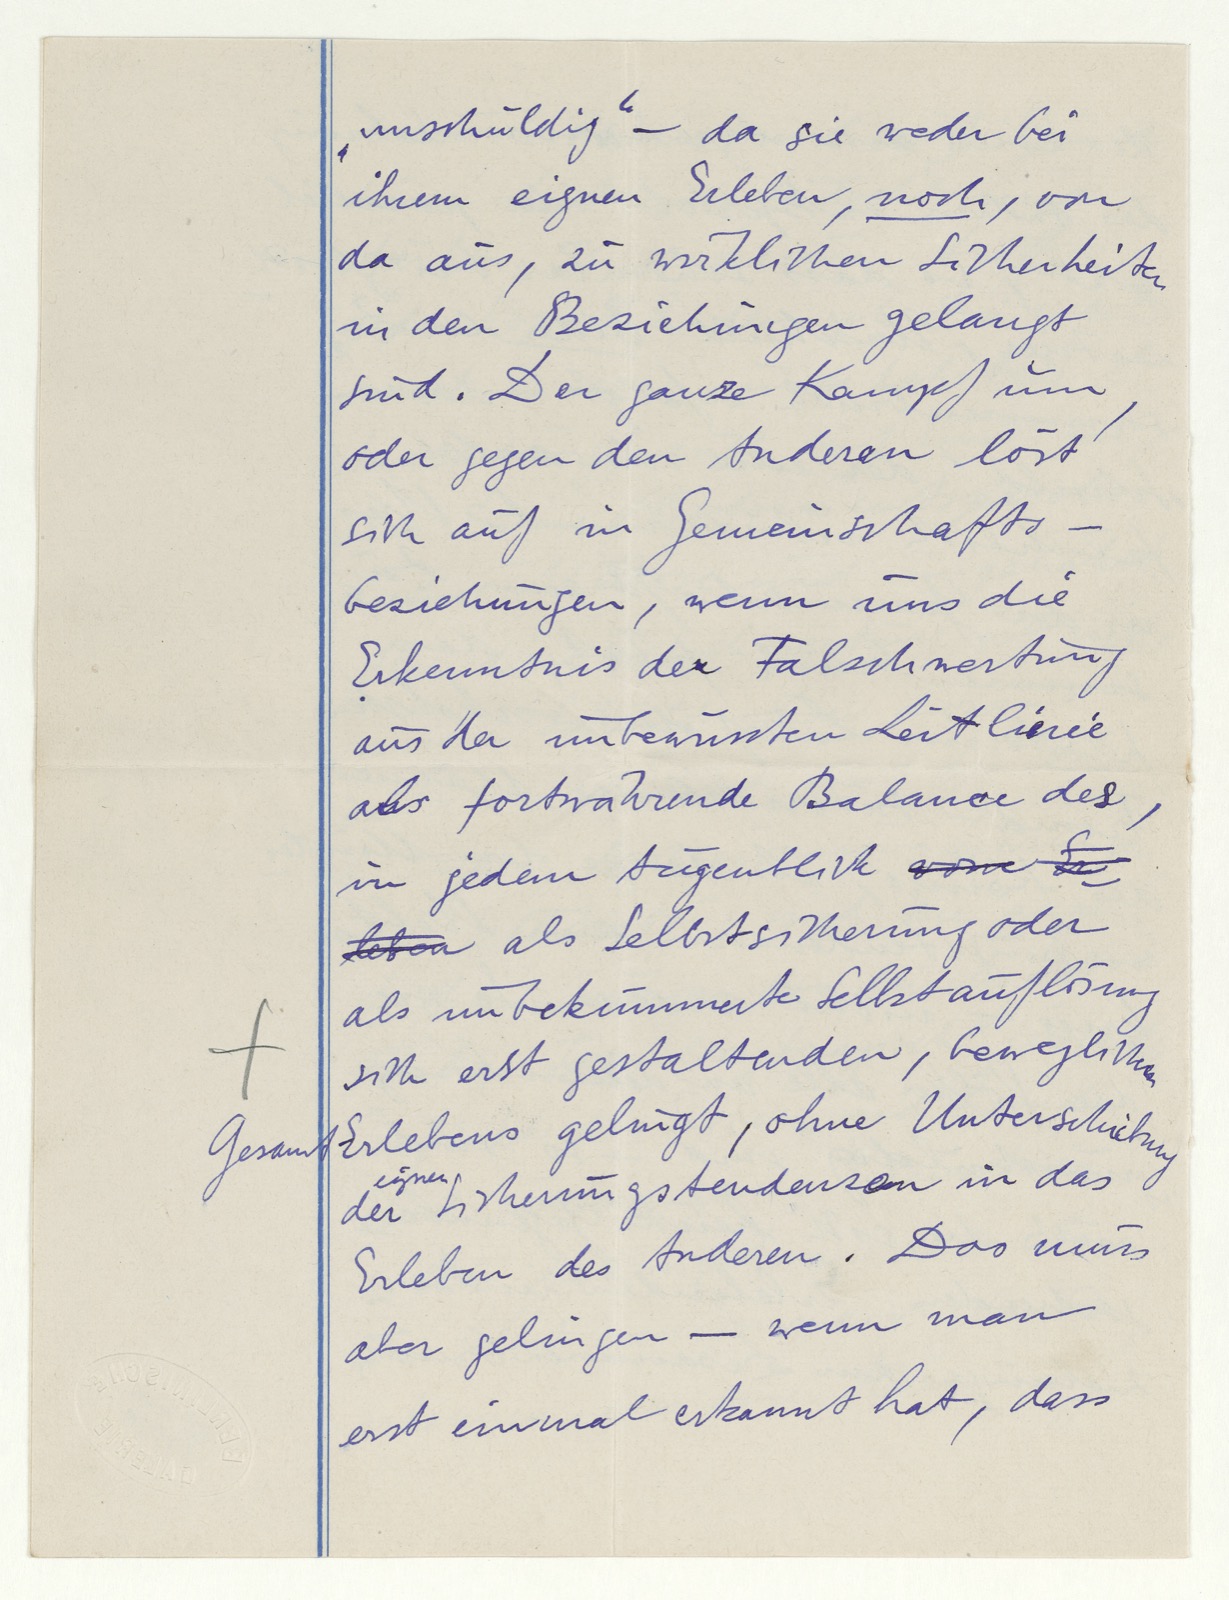 „unschuldig“ — da sie weder bei
ihrem eignen Erleben, noch, von
da aus, zu wirklichen Sicherheiten
in den Beziehungen gelangt
sind. Der ganze Kampf um,
oder gegen den Anderen löst
sich auf in Gemeinschafts –
beziehungen, wenn uns die
Erkenntnis der Falschwertung
aus der unbewussten Leitlinie
als fortwährende Balance des,
in jedem Augenblick vom Er-
leben als Selbstsicherung oder
als unbekümmerte Selbstauflösung
sich erst gestaltenden, beweglichen
Gesamt Erlebens gelingt, ohne Unterschiebung
der eignen Sicherungstendenzen in das
Erleben des Anderen. Das muss
aber gelingen — wenn man
erst einmal erkannt hat, dass